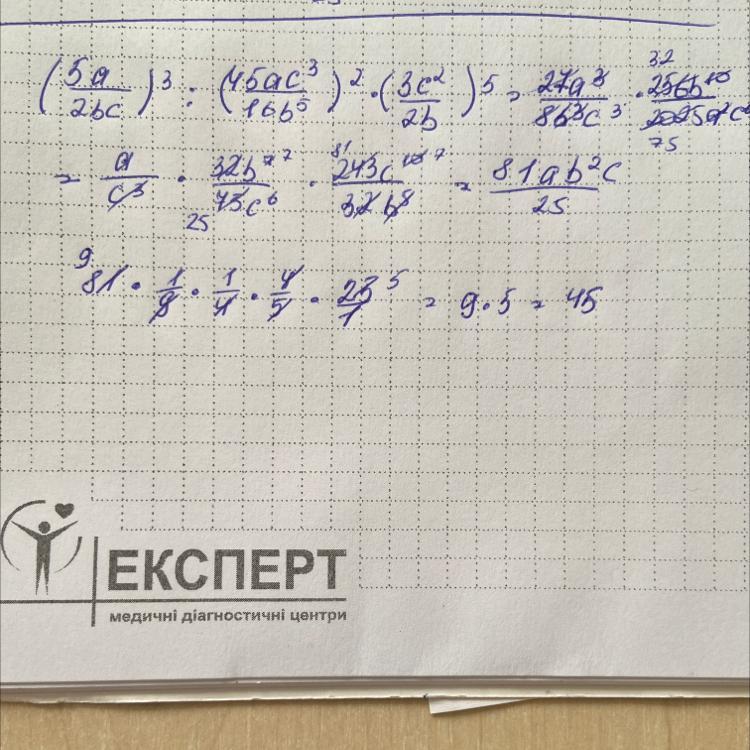 (5a/2bc)³ : (45ac³/16b⁵)² · (3c²/2b)⁵ = 27a³/8b³c³ · 256b¹⁰/2025a²c⁶
32
75
= a/c³ · 32b⁷ ⁷/75c⁶ · 243c¹⁰ ⁷/32b⁸ = 81ab²c/25
81
25
9
81 · 1/9 · 1/4 · 4/5 · 25/1 5 = 9·5 = 45
ЕКСПЕРТ
медичні діагностичні центри